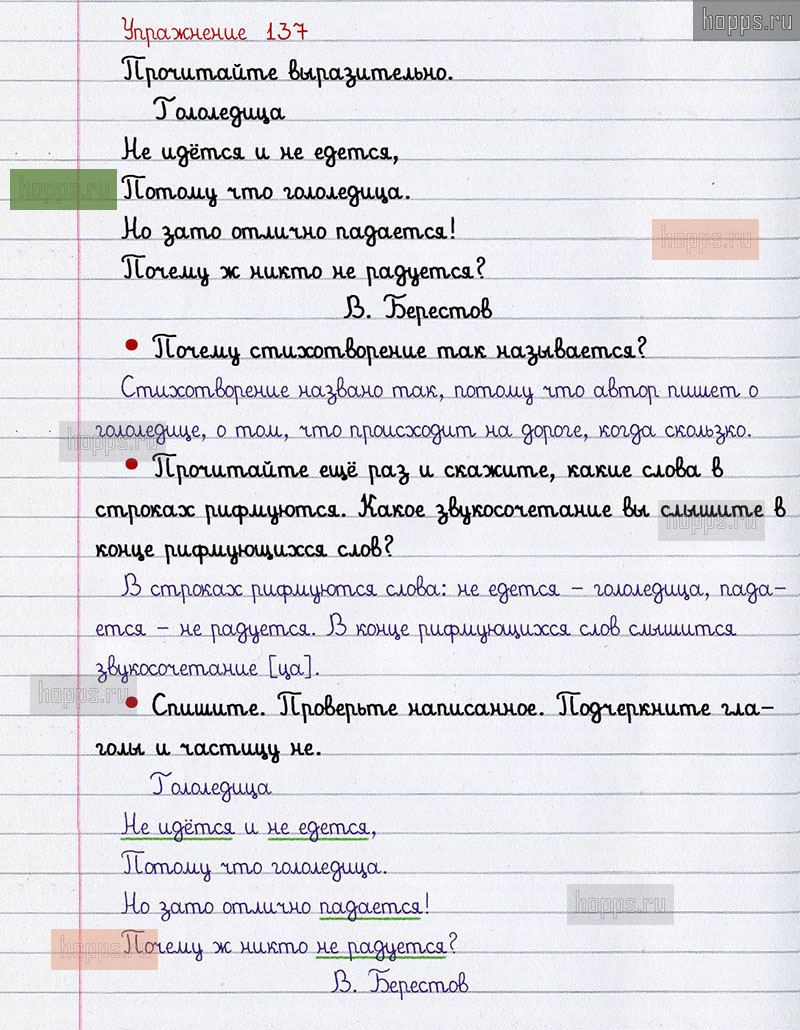 hopps.ru
Упражнение 137
Прочитайте выразительно.
Гололедица
Не идётся и не едется,
hopps.ru
Потому что гололедица.
Но зато отлично падается!
hopps.ru
Почему ж никто не радуется?
В. Берестов
• Почему стихотворение так называется?
Стихотворение названо так, потому что автор пишет о
гололедице, о том, что происходит на дороге, когда скользко.
hopps.ru
• Прочитайте ещё раз и скажите, какие слова в
строках рифмуются. Какое звукосочетание вы слышите в
hopps.ru
конце рифмующихся слов?
В строках рифмуются слова: не едется – гололедица, пада–
ется – не радуется. В конце рифмующихся слов слышится
звукосочетание [ца].
hopps.ru
• Спишите. Проверьте написанное. Подчеркните гла–
голы и частицу не.
Гололедица
Не идётся и не едется,
Потому что гололедица.
Но зато отлично падается!
hopps.ru
Почему ж никто не радуется?
hopps.ru
В. Берестов